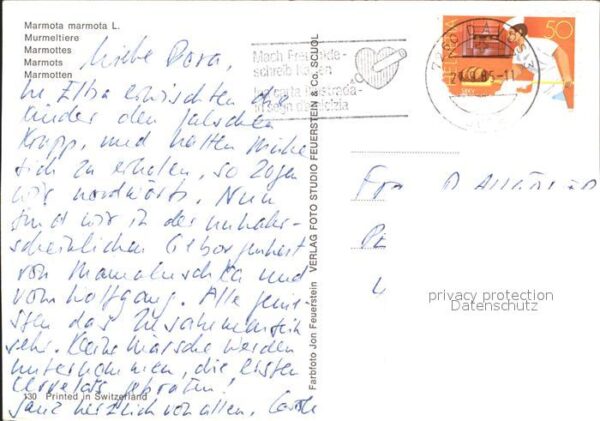 Marmota marmota L.
Murmeltiere
Marmottes
Marmots
Marmotten
Liebe Dora,
in Elba erwischten die
Kinder den falschen
Krupp, und hatten Mühe
sich zu erholen, so zogen
wir nordwärts. Nun
sind wir in der unwahr-
scheinlichen Geborgenheit
von und
vom Wolfgang. Alle genies-
sen das Zusammensein
sehr. Kleine Märsche werden
unternommen, die ersten
Cervelats gebraten!
Ganz herzlich von allen,
130 Printed in Switzerland
Farbfoto Jon Feuerstein VERLAG FOTO STUDIO FEUERSTEIN & Co. SCUOL
Mach Freude
schreib Karten
7260 DAVOS
50
HELVETIA
privacy protection
Datenschutz